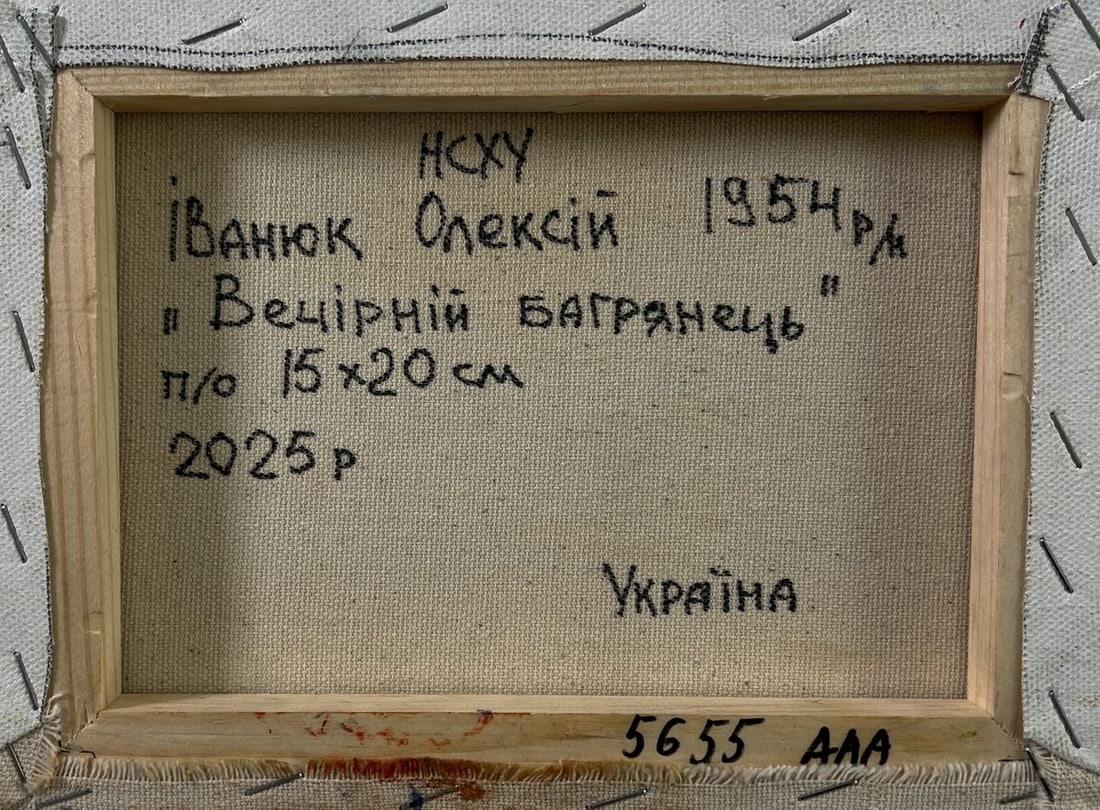 НСХУ
Іванюк Олексій 1954 р/н
„Вечірній багрянець"
п/о 15х20 см
2025 р
Україна
5655 ААА